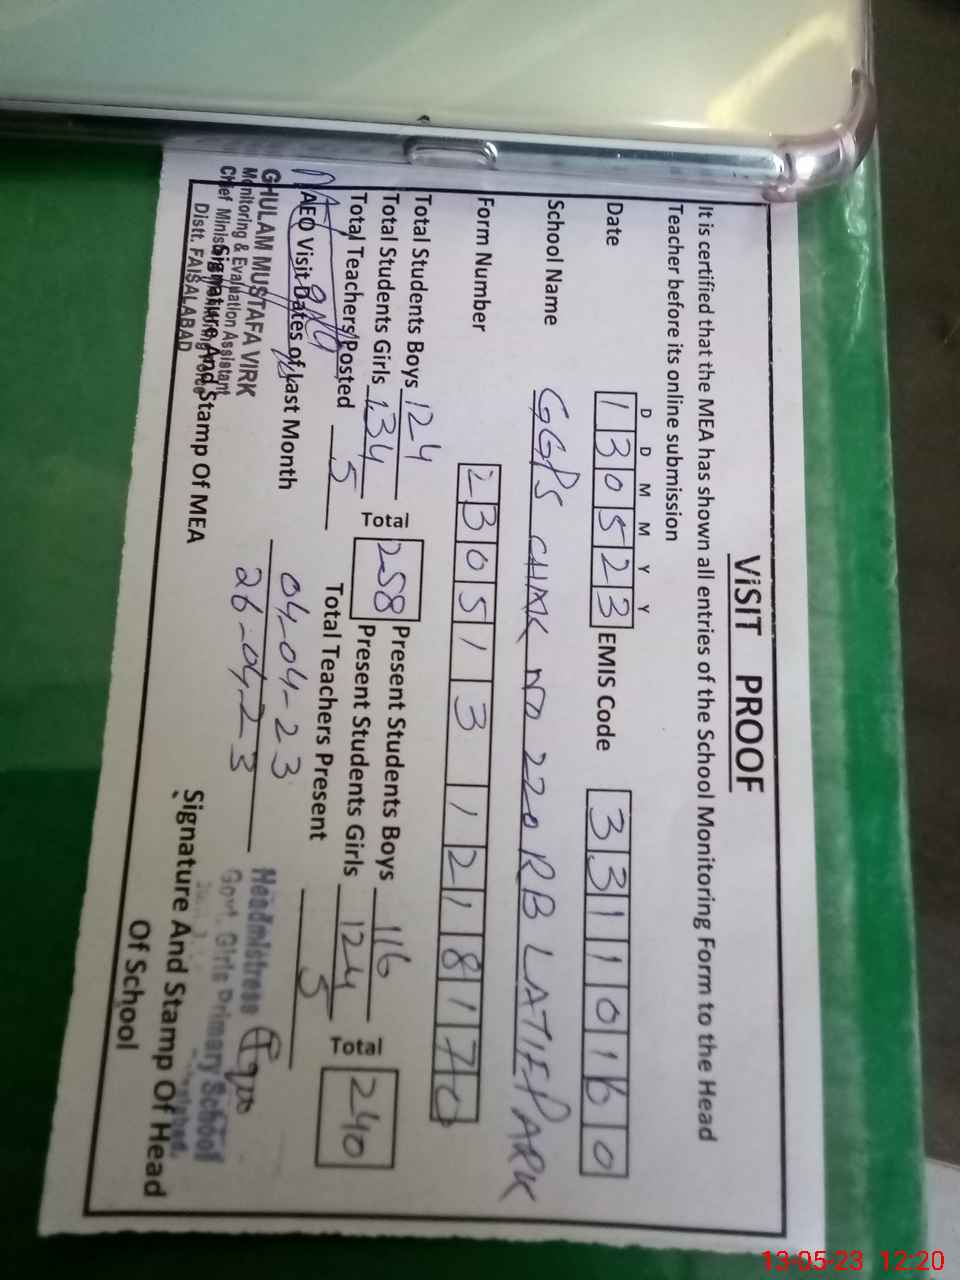 ViSIT PROOF
It is certified that the MEA has shown all entries of the School Monitoring Form to the Head
Teacher before its online submission
D D M M Y Y
Date 130523 EMIS Code 33110160
School Name GGPS CHAK NO 220 RB LATIF PARK
Form Number 2305131218170
Total Students Boys 124 Present Students Boys 116
Total 258 Total 240
Total Students Girls 134 Present Students Girls 124
Total Teachers Posted 5 Total Teachers Present 5
AEO Visit Dates of Last Month 04-04-23
26-04-23
GHULAM MUSTAFA VIRK
Monitoring & Evaluation Assistant
Chief Minister's Monitoring Force
Distt. FAISALABAD
Signature And Stamp Of MEA
Headmistress
Govt. Girls Primary School
Signature And Stamp Of Head
Of School
13-05-23 12:20